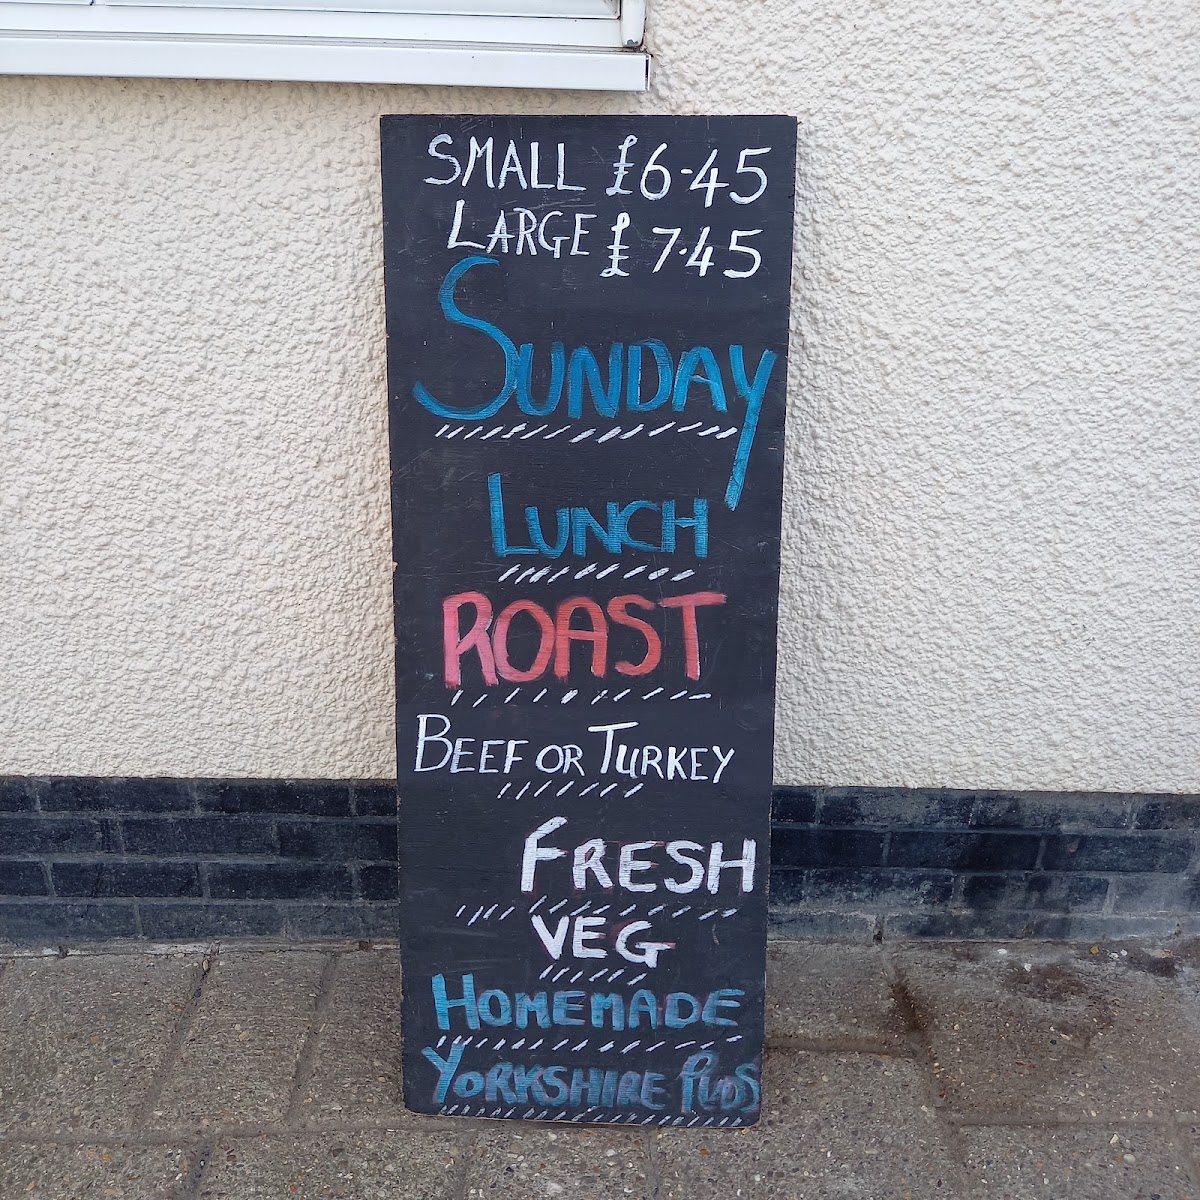 SMALL £6.45
LARGE £7.45
SUNDAY
LUNCH
ROAST
BEEF OR TURKEY
FRESH
VEG
HOMEMADE
YORKSHIRE PUDS